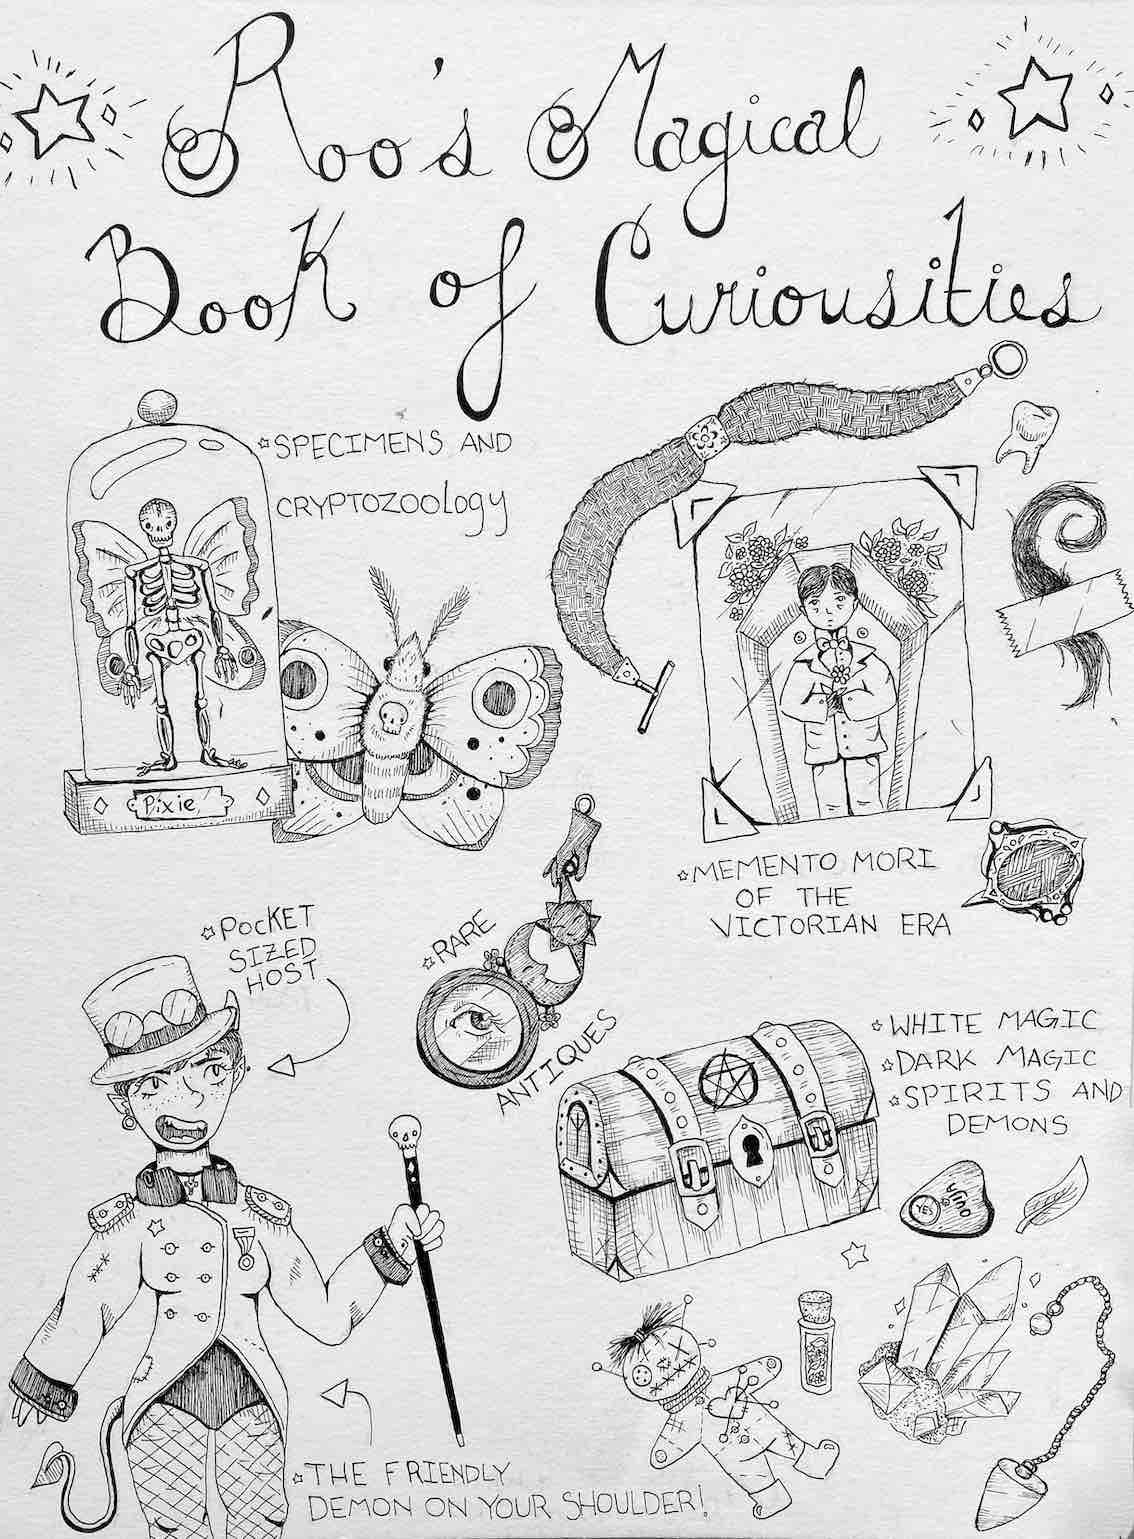 Roo's Magical
Book of Curiousities
SPECIMENS AND
CRYPTOZOOlogy
Pixie
MEMENTO MORI
OF THE
VICTORIAN ERA
POCKET
SIZED
HOST
RARE
ANTIQUES
WHITE MAGIC
DARK MAGIC
SPIRITS AND
DEMONS
YES
OUIJA
THE FRIENDLY
DEMON ON YOUR SHOULDER!